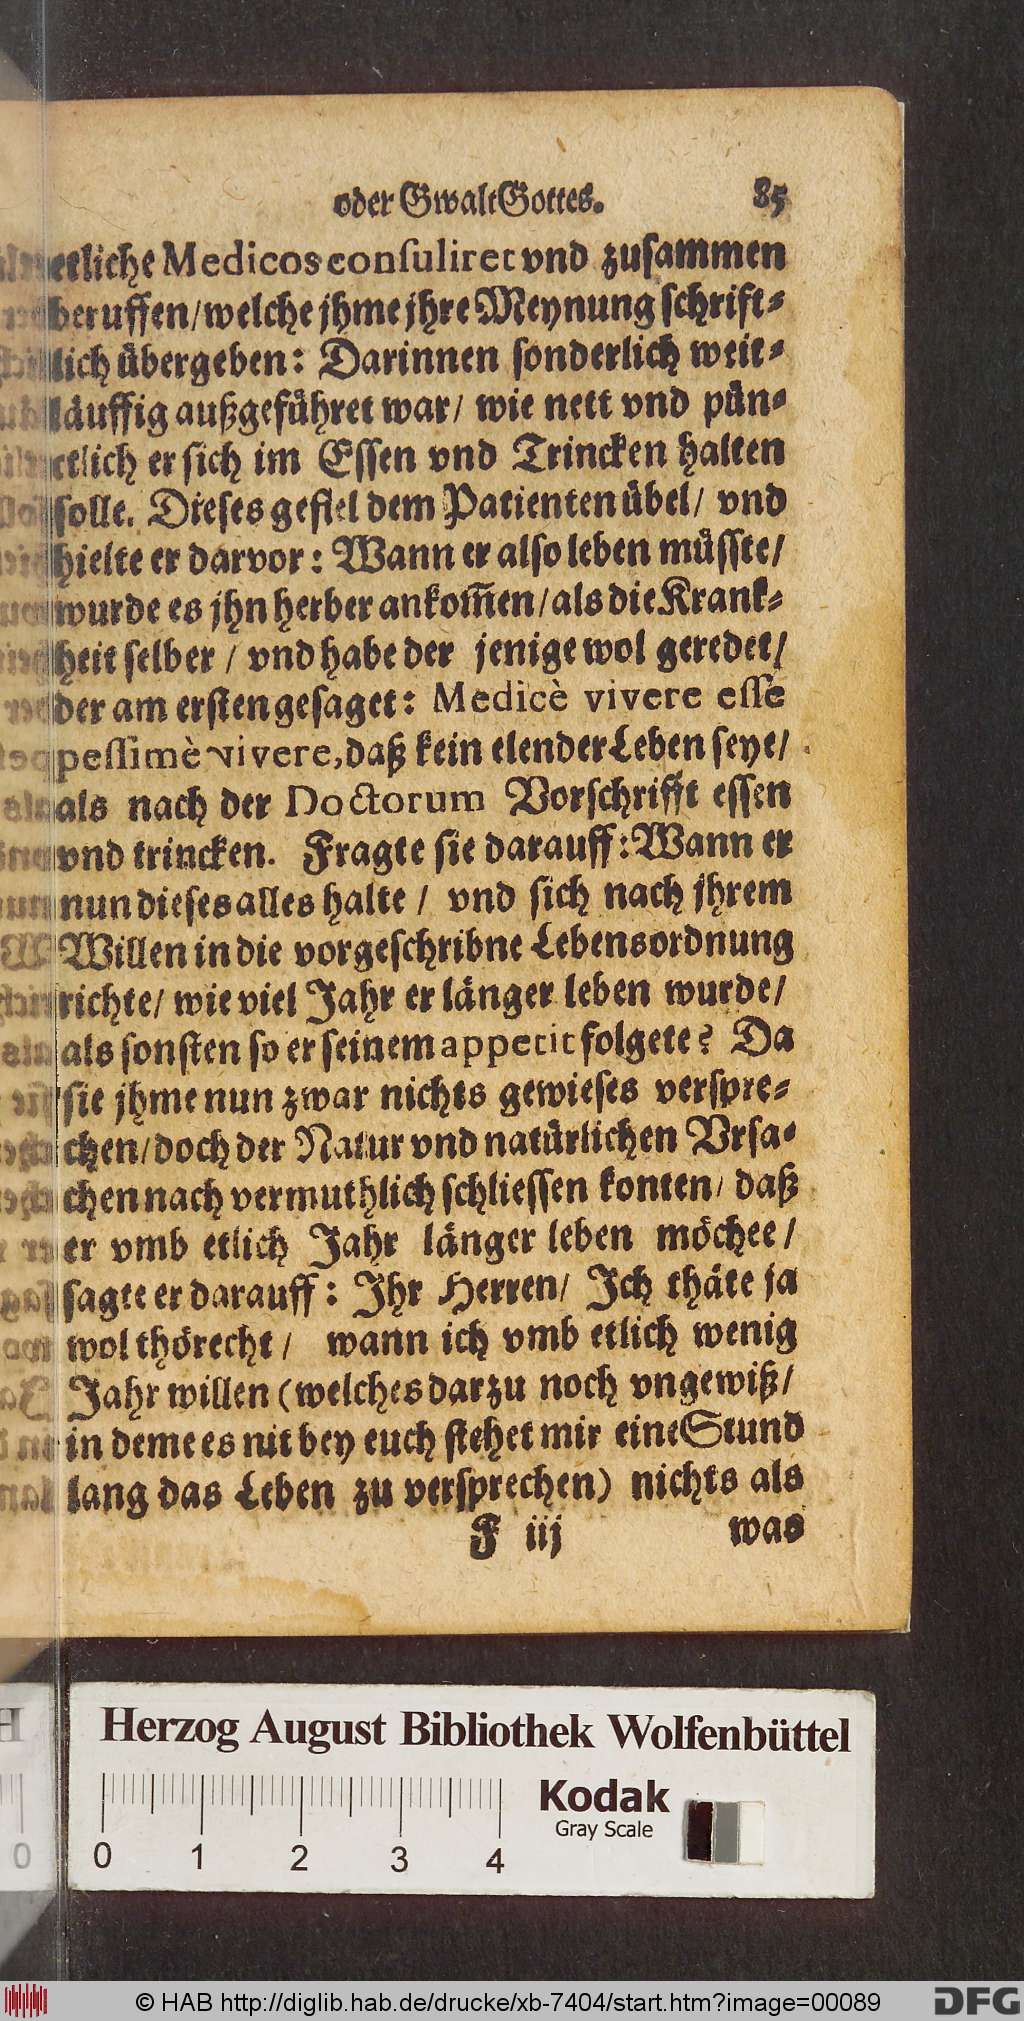 oder Gwalt Gottes. 85
etliche Medicos conſuliret vnd zuſammen
beruffen/ welche jhme jhre Meynung ſchrifft⸗
lich übergeben: Darinnen ſonderlich weit⸗
läuffig außgeführet war/ wie nett vnd pün⸗
ctlich er ſich im Eſſen vnd Trincken halten
ſolle. Dieſes gefiel dem Patienten übel/ vnd
hielte er darvor: Wann er alſo leben müſſte/
wurde es jhn herber ankom̃en/ als die Krank⸗
heit ſelber / vnd habe der jenige wol geredet/
der am erſten geſaget: Medicè vivere eſſe
peſſimè vivere, daß kein elender Leben ſeye/
als nach der Doctorum Vorſchrifft eſſen
vnd trincken. Fragte ſie darauff: Wann er
nun dieſes alles halte / vnd ſich nach jhrem
Willen in die vorgeſchribne Lebensordnung
richte/ wie viel Jahr er länger leben wurde/
als ſonſten ſo er ſeinem appetit folgete? Da
ſie jhme nun zwar nichts gewieſes verſpre⸗
chen/ doch der Natur vnd natürlichen Vrſa⸗
chen nach vermuthlich ſchlieſſen konten/ daß
er vmb etlich Jahr länger leben möchee/
ſagte er darauff: Ihr Herren/ Ich thäte ja
wol thörecht / wann ich vmb etlich wenig
Jahr willen (welches darzu noch vngewiß/
in deme es nit bey euch ſtehet mir eine Stund
lang das Leben zu verſprechen) nichts als
F iij was
Herzog August Bibliothek Wolfenbüttel
Kodak
Gray Scale
0 1 2 3 4
© HAB http://diglib.hab.de/drucke/xb-7404/start.htm?image=00089
DFG